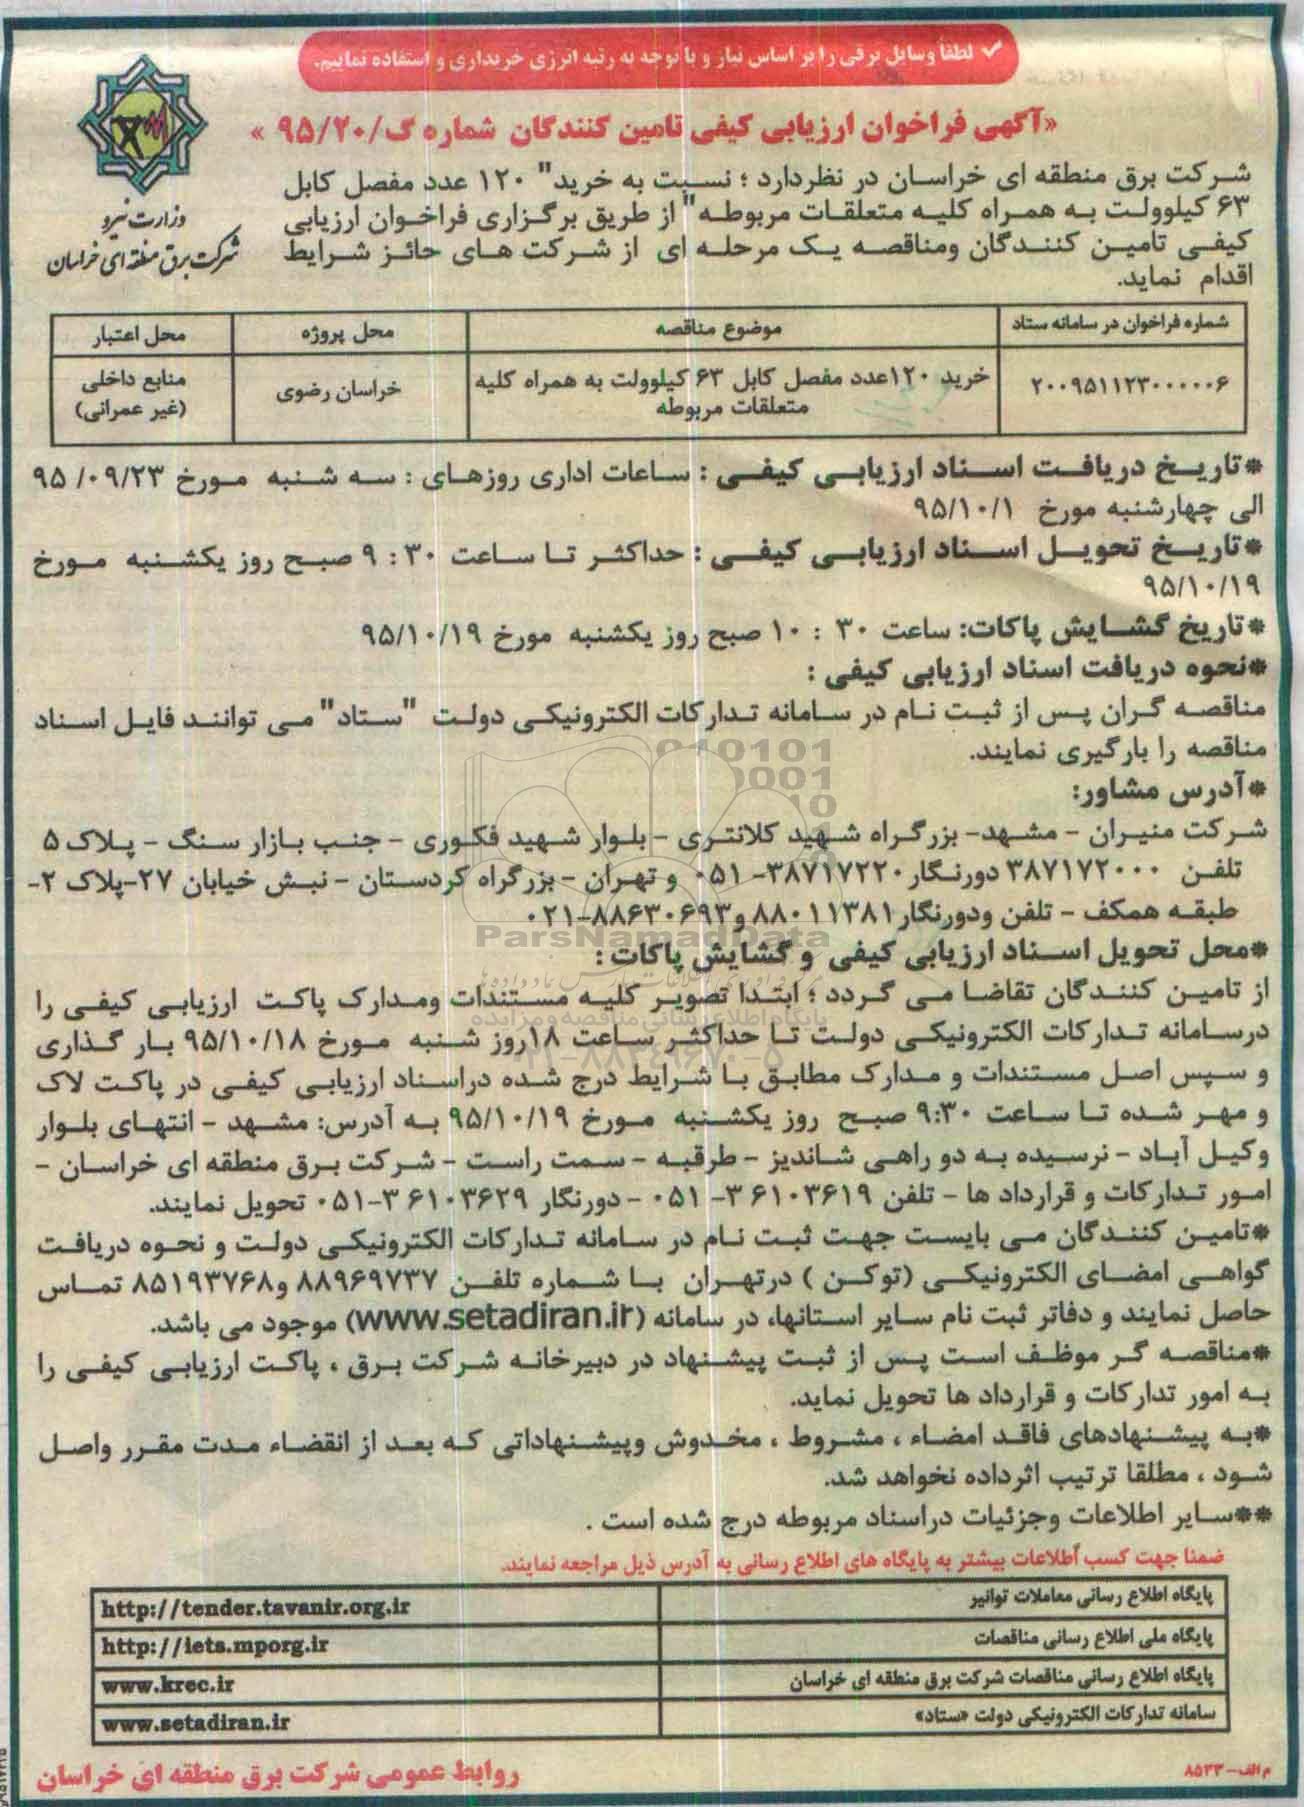 ✓ لطفاً وسایل برقی را بر اساس نیاز و با توجه به رتبه انرژی خریداری و استفاده نماییم.
«آگهی فراخوان ارزیابی کیفی تامین کنندگان شماره گ/۹۵/۲۰ »
وزارت نیرو
شرکت برق منطقه ای خراسان
شرکت برق منطقه ای خراسان در نظردارد ؛ نسبت به خرید" ۱۲۰ عدد مفصل کابل
۶۳ کیلوولت به همراه کلیه متعلقات مربوطه" از طریق برگزاری فراخوان ارزیابی
کیفی تامین کنندگان ومناقصه یک مرحله ای از شرکت های حائز شرایط
اقدام نماید.
شماره فراخوان در سامانه ستاد | موضوع مناقصه | محل پروژه | محل اعتبار
۲۰۰۹۵۱۱۲۳۰۰۰۰۰۶ | خرید ۱۲۰عدد مفصل کابل ۶۳ کیلوولت به همراه کلیه | خراسان رضوی | منابع داخلی
متعلقات مربوطه | (غیر عمرانی)
*تاریخ دریافت اسناد ارزیابی کیفی : ساعات اداری روزهای : سه شنبه مورخ ۹۵ /۰۹/۲۳
الی چهارشنبه مورخ ۹۵/۱۰/۱
*تاریخ تحویل اسناد ارزیابی کیفی : حداکثر تا ساعت ۳۰ : ۹ صبح روز یکشنبه مورخ
۹۵/۱۰/۱۹
*تاریخ گشایش پاکات: ساعت ۳۰ : ۱۰ صبح روز یکشنبه مورخ ۹۵/۱۰/۱۹
*نحوه دریافت اسناد ارزیابی کیفی :
مناقصه گران پس از ثبت نام در سامانه تدارکات الکترونیکی دولت "ستاد" می توانند فایل اسناد
مناقصه را بارگیری نمایند.
*آدرس مشاور:
شرکت منیران - مشهد- بزرگراه شهید کلانتری - بلوار شهید فکوری - جنب بازار سنگ - پلاک ۵
تلفن ۳۸۷۱۷۲۰۰۰ دورنگار ۳۸۷۱۷۲۲۰- ۰۵۱ و تهران - بزرگراه کردستان - نبش خیابان ۲۷-پلاک ۲-
طبقه همکف - تلفن ودورنگار ۸۸۰۱۱۳۸۱ و ۸۸۶۳۰۶۹۳-۰۲۱
ParsNamadData
*محل تحویل اسناد ارزیابی کیفی و گشایش پاکات :
از تامین کنندگان تقاضا می گردد ؛ ابتدا تصویر کلیه مستندات ومدارک پاکت ارزیابی کیفی را
پایگاه اطلاع رسانی مناقصه و مزایده
درسامانه تدارکات الکترونیکی دولت تا حداکثر ساعت ۱۸روز شنبه مورخ ۹۵/۱۰/۱۸ بار گذاری
۰۲۱-۸۸۳۴۹۶۷۰-۵
و سپس اصل مستندات و مدارک مطابق با شرایط درج شده دراسناد ارزیابی کیفی در پاکت لاک
و مهر شده تا ساعت ۹:۳۰ صبح روز یکشنبه مورخ ۹۵/۱۰/۱۹ به آدرس: مشهد - انتهای بلوار
وکیل آباد - نرسیده به دو راهی شاندیز - طرقبه - سمت راست - شرکت برق منطقه ای خراسان -
امور تدارکات و قرارداد ها - تلفن ۳۶۱۰۳۶۱۹- ۰۵۱ - دورنگار ۳۶۱۰۳۶۲۹-۰۵۱ تحویل نمایند.
*تامین کنندگان می بایست جهت ثبت نام در سامانه تدارکات الکترونیکی دولت و نحوه دریافت
گواهی امضای الکترونیکی (توکن ) درتهران با شماره تلفن ۸۸۹۶۹۷۳۷ و۸۵۱۹۳۷۶۸ تماس
حاصل نمایند و دفاتر ثبت نام سایر استانها، در سامانه (www.setadiran.ir) موجود می باشد.
*مناقصه گر موظف است پس از ثبت پیشنهاد در دبیرخانه شرکت برق ، پاکت ارزیابی کیفی را
به امور تدارکات و قرارداد ها تحویل نماید.
*به پیشنهادهای فاقد امضاء ، مشروط ، مخدوش وپیشنهاداتی که بعد از انقضاء مدت مقرر واصل
شود ، مطلقا ترتیب اثرداده نخواهد شد.
**سایر اطلاعات وجزئیات دراسناد مربوطه درج شده است .
ضمنا جهت کسب اطلاعات بیشتر به پایگاه های اطلاع رسانی به آدرس ذیل مراجعه نمایند.
پایگاه اطلاع رسانی معاملات توانیر | http://tender.tavanir.org.ir
پایگاه ملی اطلاع رسانی مناقصات | http://iets.mporg.ir
پایگاه اطلاع رسانی مناقصات شرکت برق منطقه ای خراسان | www.krec.ir
سامانه تدارکات الکترونیکی دولت «ستاد» | www.setadiran.ir
م الف- ۸۵۳۳
روابط عمومی شرکت برق منطقه ای خراسان